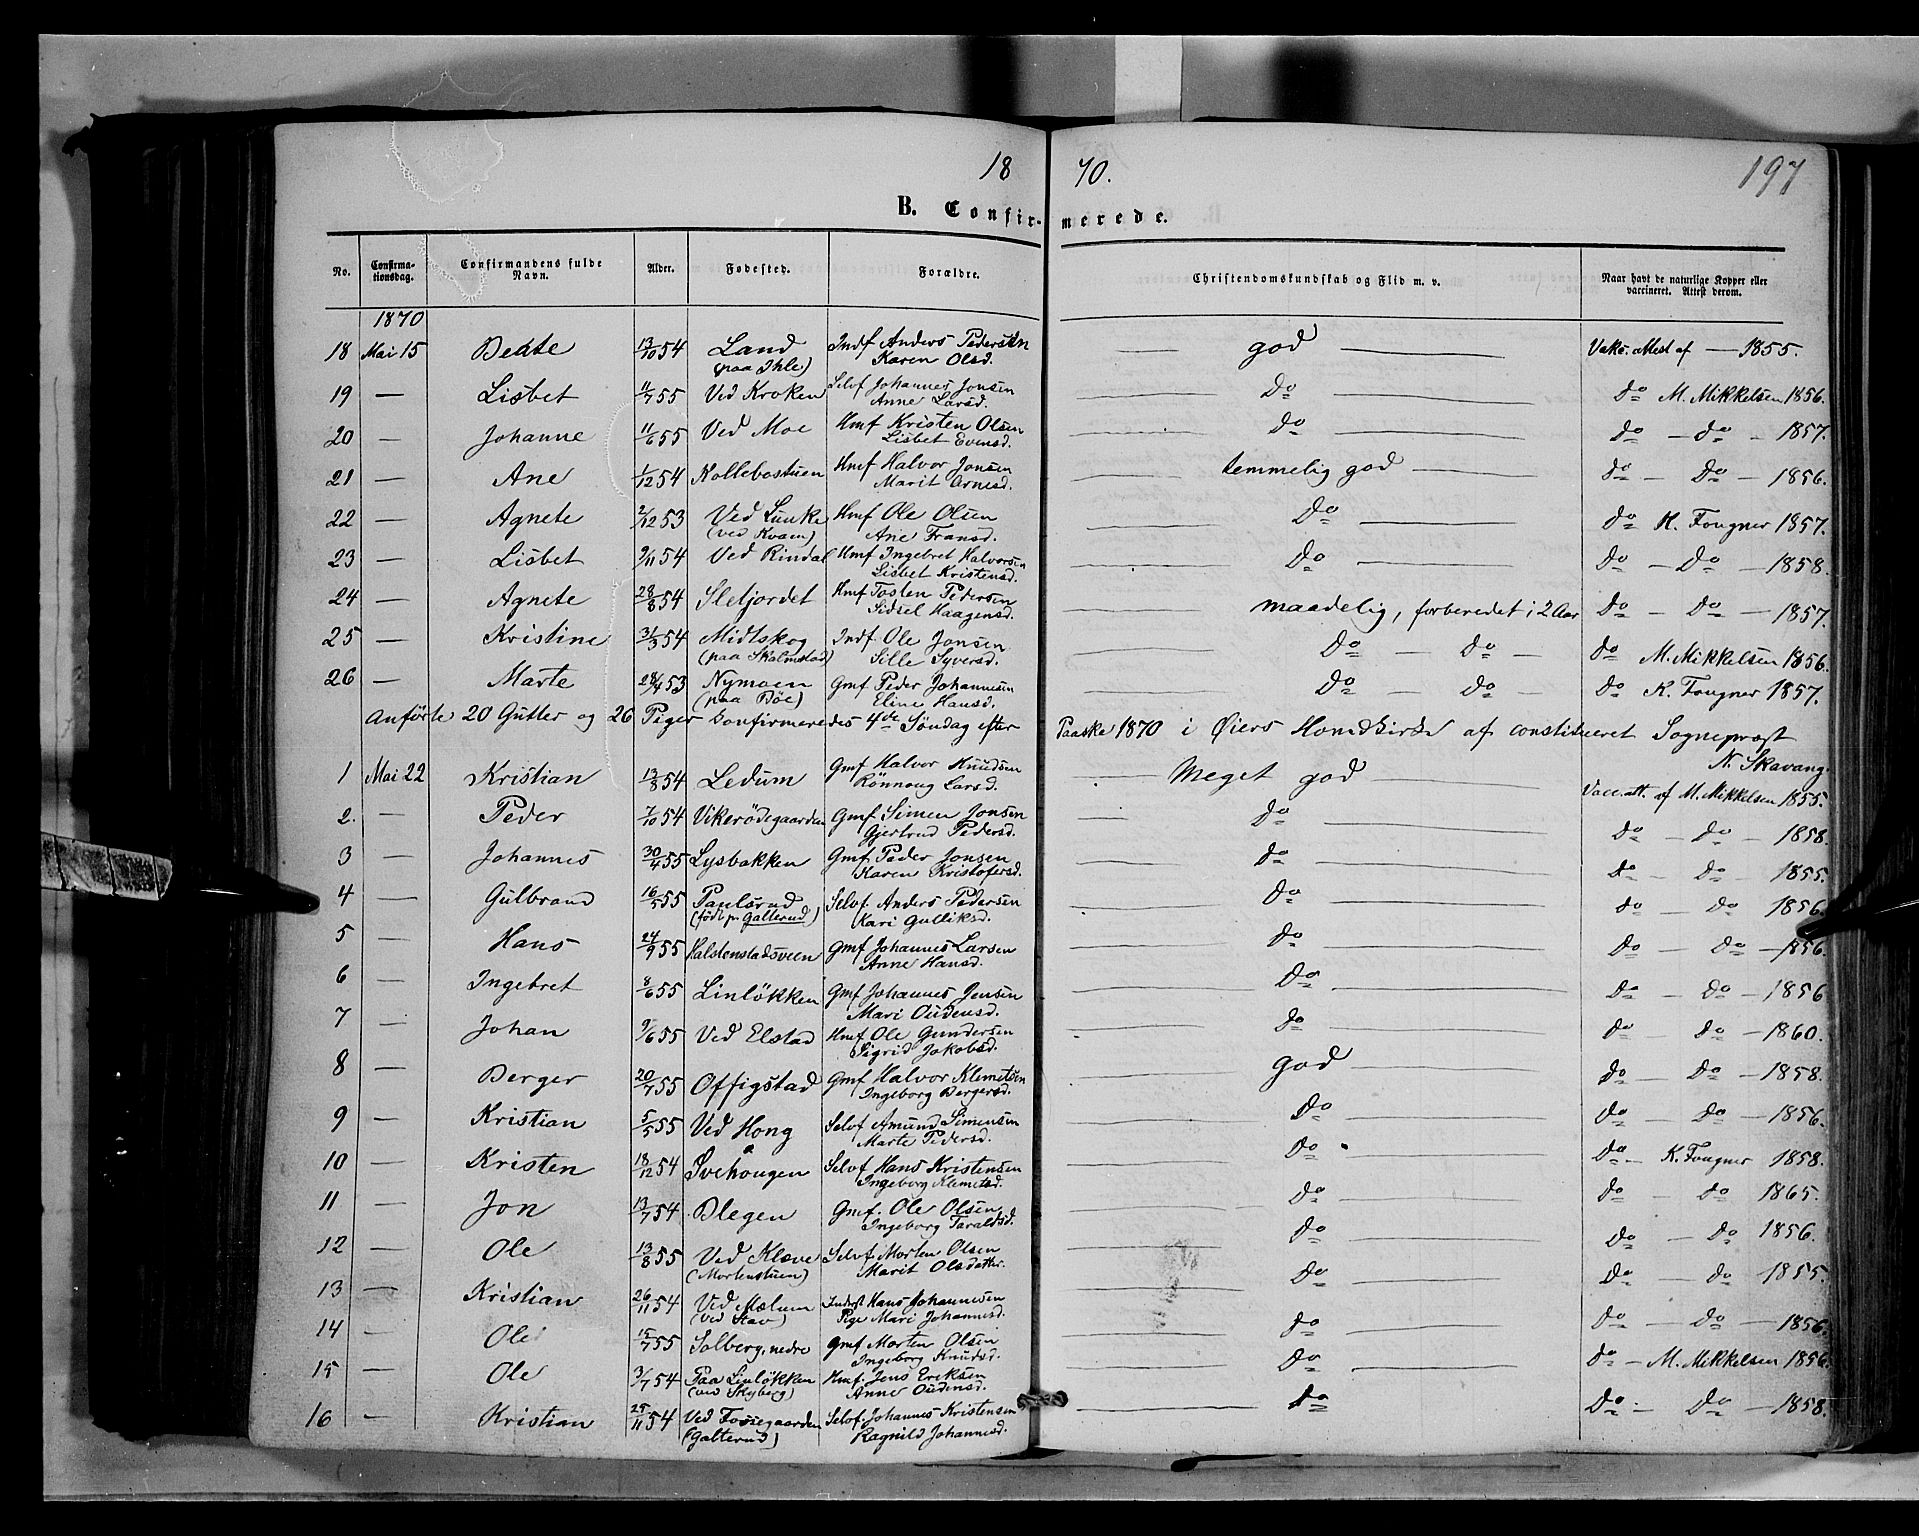 18 70. 197
B. Confirmerede.
No. Confirmationsdag. Confirmandens fulde Navn. Alder. Fødested. Forældre. Christendomskundskab og Flid m. v. Naar havt de naturlige Kopper eller vaccineret. Attest derom.
1870
18 Mai 15 Beate 13/10 54 Land Indf Anders Pedersen god Vakc. attest af — 1855.
(paa Ihle) Karen Olsd.
19 — Lisbet 11/7 55 Ved Kroken Selvf Johannes Jonsen Do Do M. Mikkelsen 1856.
Anne Larsd.
20 — Johanne 11/6 55 Ved Moe Hmf Kristen Olsen Do Do — Do — 1857.
Lisbet Evensd.
21 — Ane 1/12 54 Kollebostuen Hmf Halvor Jonsen temmelig god Do — Do — 1856.
Marit Arnesd.
22 — Agnete 2/12 53 Ved Lunke Hmf Ole Olsen Do Do K. Fougner 1857.
(ved Kvam) Ane Fransd.
23 — Lisbet 9/11 54 Ved Rindal Hmf Ingebret Halvorsen Do Do — Do — 1858.
Lisbet Kristensd.
24 — Agnete 28/8 54 Sletjordet Hmf Tosten Pedersen maadelig, forberedet i 2 Aar Do — Do — 1857.
Sidsel Haagensd.
25 — Kristine 31/3 54 Midtskog Indf. Ole Jonsen Do — Do — Do M. Mikkelsen 1856.
(paa Skalmstad) Sille Syversd.
26 — Marte 28/4 53 Nymoen Gmf Peder Johannesen Do — Do — Do K. Fougner 1857.
(paa Bøe) Eline Hansd.
Anførte 20 Gutter og 26 Piger konfirmeredes 4de Søndag efter Paaske 1870 i Øiers Hovedkirke af constitueret Sognepræst
N. Skavang.
1 Mai 22 Kristian 13/8 54 Ledum Gmf Halvor Knudsen Meget god Vacc. att. af M. Mikkelsen 1855.
Rønnoug Larsd.
2. — Peder 7/10 54 Vikerødegaarden Gmf Simen Jonsen Do Do — Do — 1858.
Gjertrud Pedersd.
3 — Johannes 30/4 55 Lysbakken Gmf Peder Jonsen Do Do — Do — 1855.
Karen Kristofersd.
4 — Gulbrand 16/5 55 Paulsrud Selvf. Anders Pedersen Do Do — Do 1856.
(født p. Galterud) Kari Gulliksd.
5 — Hans 24/9 55 Halstenstadsveen Gmf Johannes Larsen Do Do — Do — 1856.
Anne Hansd.
6 — Ingebret 8/6 55 Linløkken Gmf Johannes Jensen Do Do — Do — 1856
Mari Oudensd.
7 — Johan 9/6 55 Ved Elstad Hmf Ole Gundersen Do Do — Do — 1860.
Sigrid Jakobsd.
8 — Berger 20/7 55 Offigstad Gmf Halvor Klemetsen god Do — Do — 1858.
Ingeborg Bergersd.
9 — Kristian 5/5 55 Ved Hong Selvf Amund Simensen Do Do — Do — 1856.
Marte Pedersd.
10 — Kristen 18/12 54 Svehougen Selvf Hans Kristensen Do Do — K. Fougner 1858.
Ingeborg Klemetsd.
11 — Jon 13/7 54 Blegen Gmf. Ole Olsen Do Do — Do 1865.
Ingeborg Taraldsd.
12 — Ole 13/8 55 Ved Klæve Selvf Morten Olsen Do Do — Do 1856.
(Mortenstuen) Marit Olsdatter.
13 — Kristian 26/11 54 Ved Mælum Inderst Hans Johannesen Do Do — Do 1855.
(ved Stav) Pige Mari Johannesd.
14 — Ole 15/7 55 Solberg, nedre Gmf Morten Olsen Do Do — Do — 1856.
Ingeborg Knudsd.
15 — Ole 3/7 54 Paa Linløkken Hmf. Jens Eriksen Do Do — M. Mikkelsen 1856.
(ved Skyberg) Anne Oudensd.
16 — Kristian 25/11 54 Ved Fossegaarden Selvf. Johannes Kristensen Do Do — Do — 1858.
(Galterud) Ragnild Johannesd.